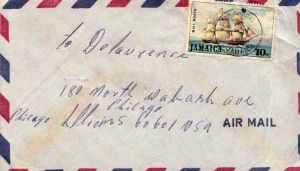 To DeLawrence
180 North Wabash ave
Chicago
Chicago Illions 60601 USA
AIR MAIL
JAMAICA 10c